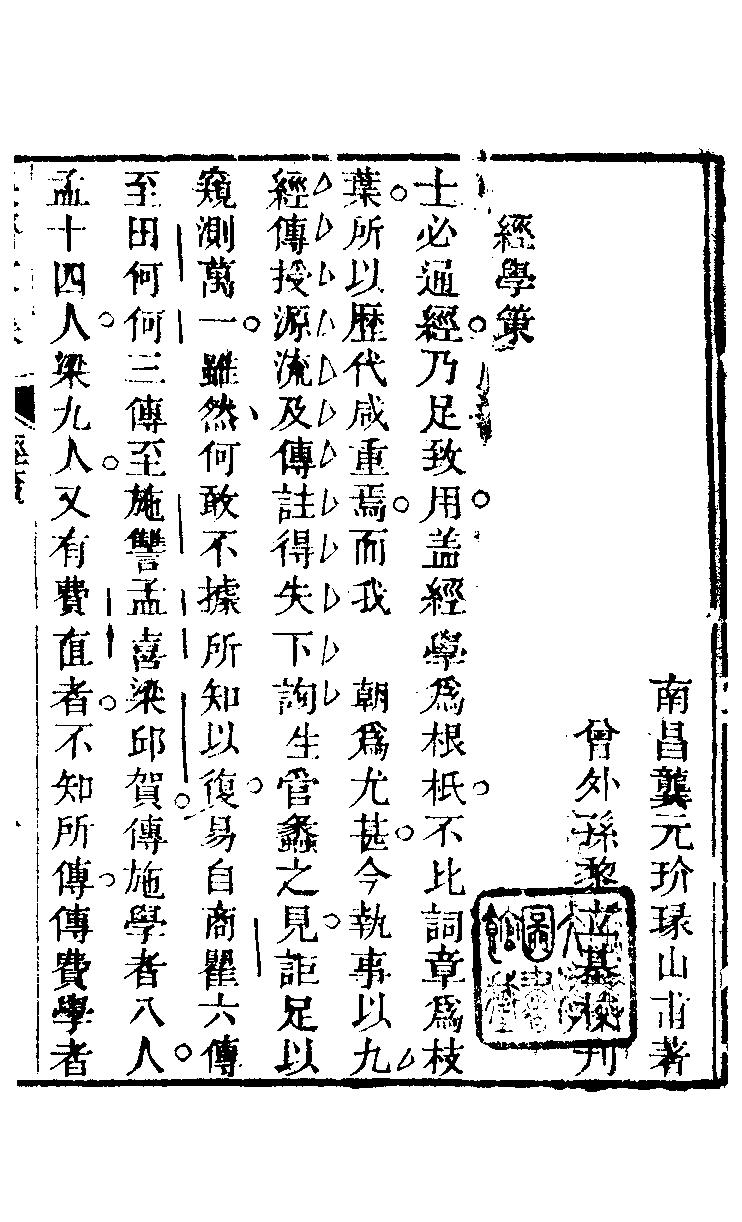 南昌龔元玠琭山甫著
曾外孫黎立基校刊
經學策
士必通經乃足致用盖經學爲根柢不比詞章爲枝
葉所以歴代咸重焉而我 朝爲尤甚今執事以九
經傳授源流及傳註得失下詢生管蠡之見詎足以
窺測萬一雖然何敢不據所知以復易自商瞿六傳
至田何何三傳至施讐孟喜梁邱賀傳施學者八人
孟十四人梁九人又有費直者不知所傳傳費學者